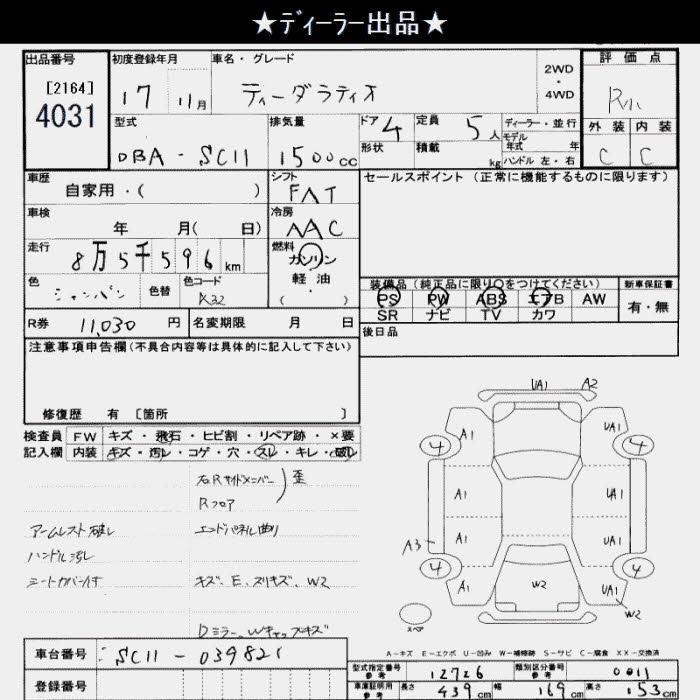 ★ディーラー出品★
出品番号
[2164]
4031
初度登録年月
17 11月
車名・グレード
ティーダラティオ
2WD
・
4WD
評価点
R小
外装 内装
C C
型式
DBA - SC11
排気量
1500cc
ドア 4
形状
定員 5人
積載 kg
ディーラー・並行
モデル
年式 年
ハンドル 左・右
車歴
自家用・( )
シフト
FAT
セールスポイント (正常に機能するものに限ります)
車検
年 月( 日)
冷房
AAC
走行
8万5千596km
燃料
ガソリン
・
軽油
・
( )
色
シャンパン
色替
色コード
K32
装備品(純正品に限り○をつけてください)
PS PW ABS エアB AW
SR ナビ TV カワ
新車保証書
有・無
R券 11,030 円
名変期限 月 日
後日品
注意事項申告欄(不具合内容等は具体的に記入して下さい)
修復歴 有 〔箇所 〕
検査員
記入欄
FW キズ・飛石・ヒビ割・リペア跡・×要
内装 キズ・汚レ・コゲ・穴・スレ・キレ・破レ
右Rサイドメンバー
Rフロア
歪
アームレスト破レ
エンドパネル曲り
ハンドル汚レ
シートカバー付
キズ、E、スリキズ、W2
Dミラー、Wキャップキズ
UA1 A2
4 A1 4
A1 UA1
A3 A1 UA1
4 A1 W2 UA1 4
W2
スペア
A-キズ E-エクボ U-凹み W-補修跡 S-サビ C-腐食 XX-交換済
車台番号 SC11 - 039821
登録番号
型式指定番号
参考
12726
類別区分番号
参考
0011
車庫証明用
参考
長さ 439cm 幅 169cm 高さ 153cm